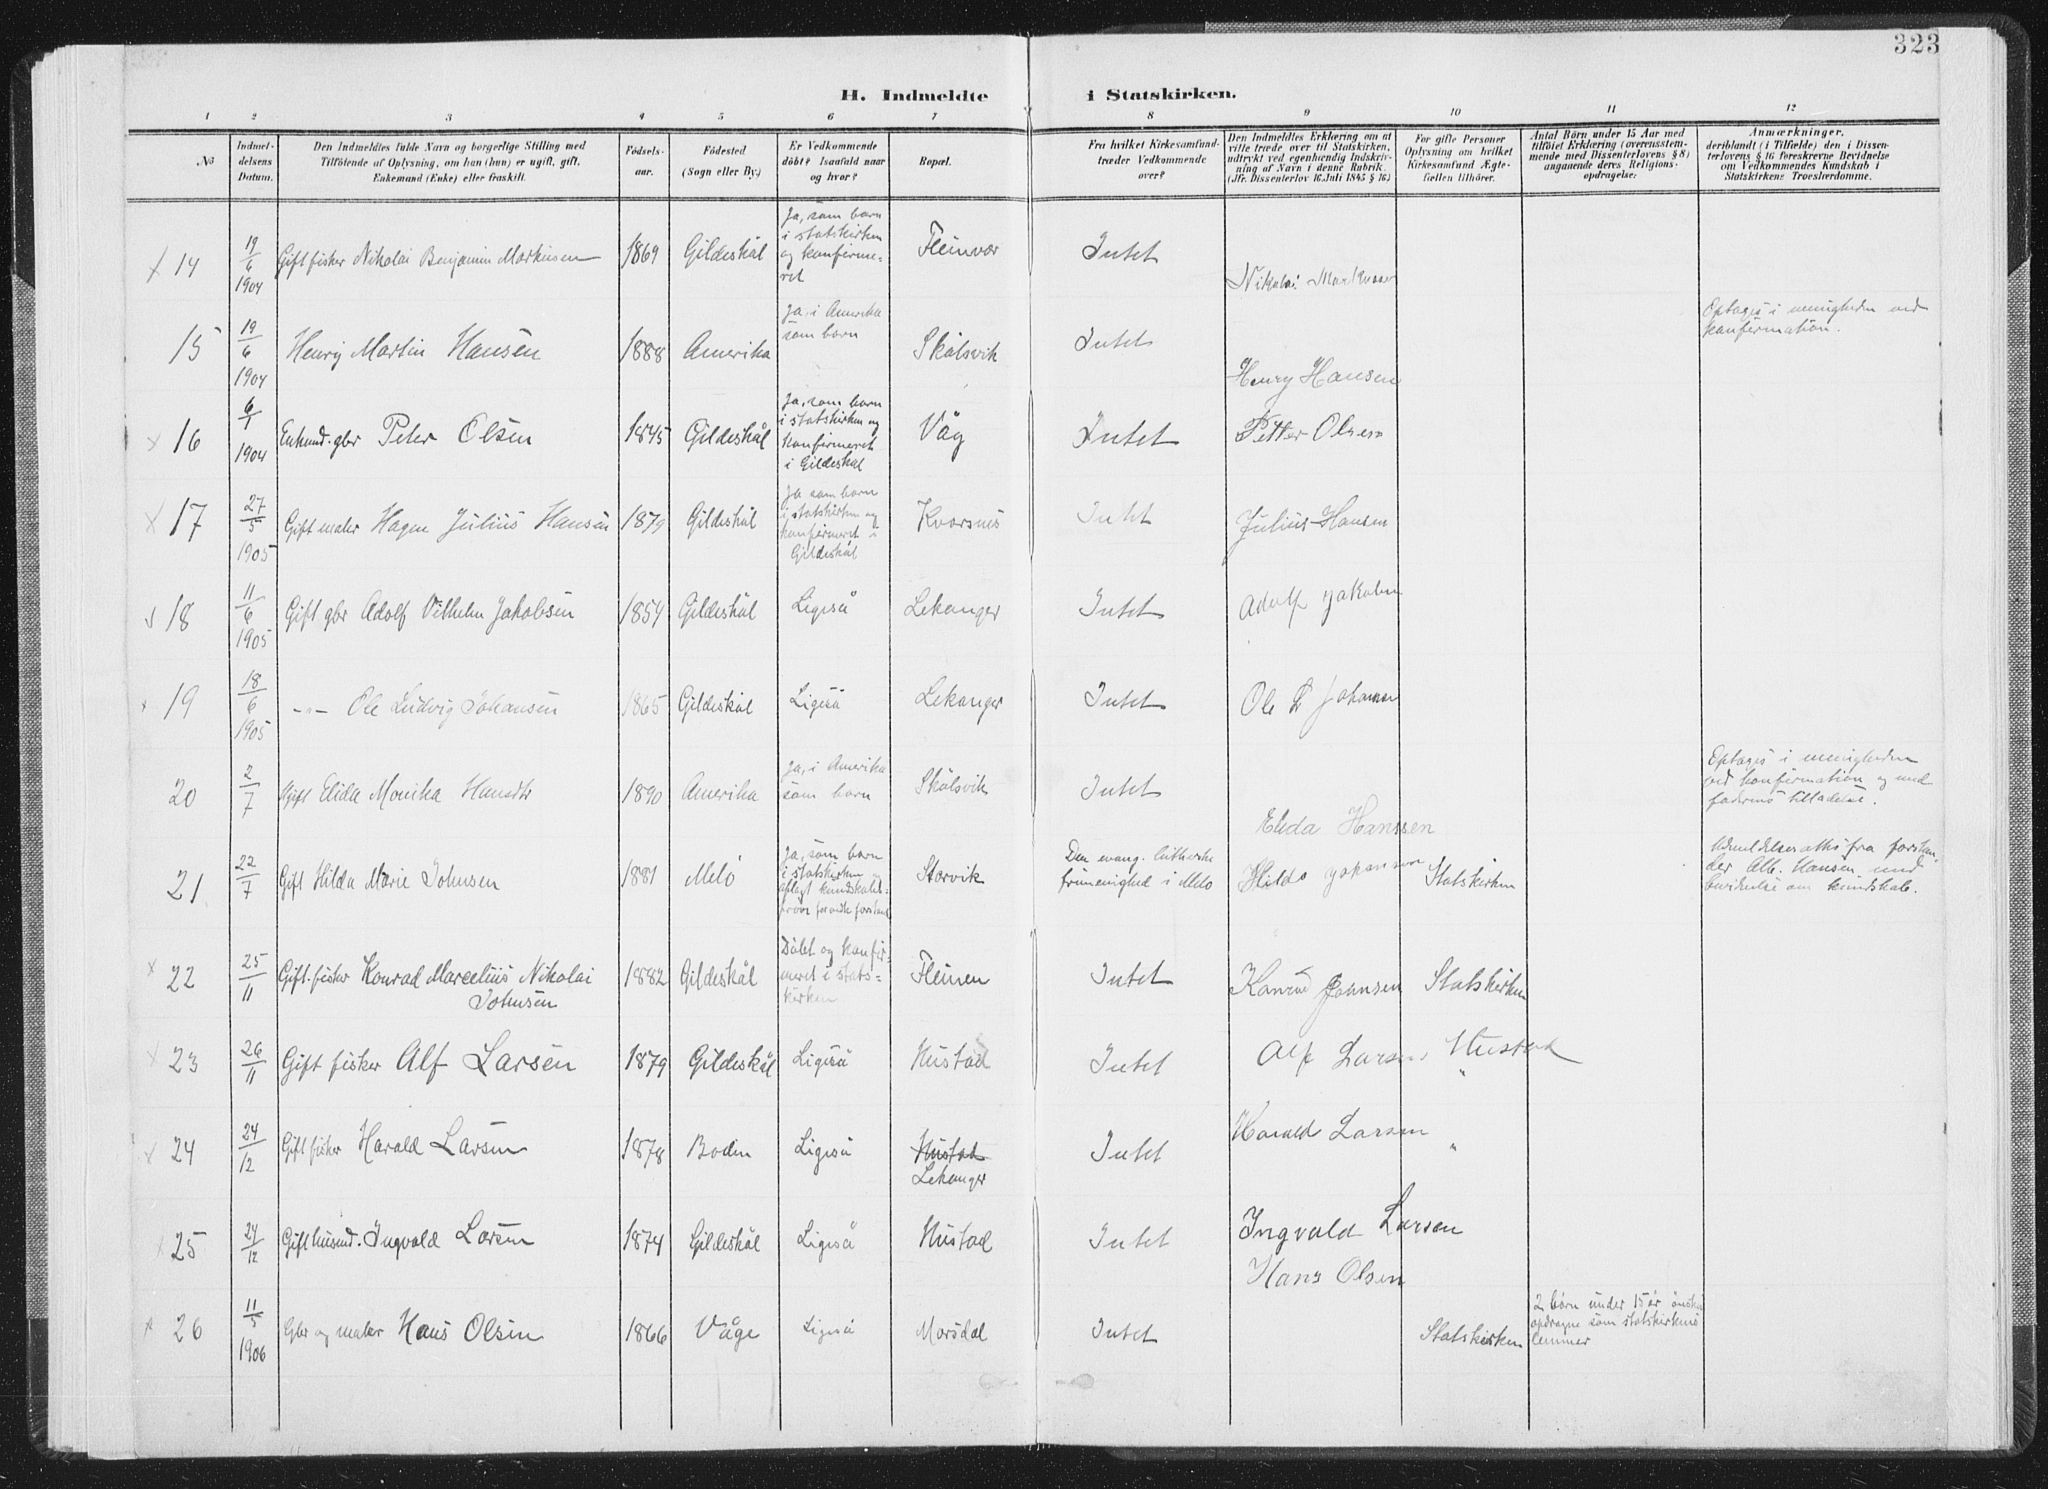 323
H. Indmeldte i Statskirken.
1 2 3 4 5 6 7 8 9 10 11 12
No
Indmeldelsens Datum.
Den Indmeldtes fulde Navn og borgerlige Stilling med
Tilföiende af Oplysning, om han (hun) er ugift, gift,
Enkemand (Enke) eller fraskilt.
Födselsaar.
Födested
(Sogn eller By.)
Er Vedkommende
döbt? Isaafald naar
og hvor?
Bopæl.
Fra hvilket Kirkesamfund
træder Vedkommende
over?
Den Indmeldtes Erklæring om at
ville træde over til Statskirken,
udtrykt ved egenhændig Indskrivning
af Navn i denne Rubrik.
(Jfr. Dissenterlov 16. Juli 1845 § 16)
For gifte Personer
Oplysning om hvilket
Kirkesamfund Ægtefællen
tilhörer.
Antal Börn under 15 Aar med
tilföiet Erklæring (overensstemmende
med Dissenterlovens § 8)
angaaende deres Religionsopdragelse:
Anmærkninger,
deriblandt (i Tilfælde) den i Dissenterlovens
§ 16 foreskrevne Bevidnelse
om Vedkommendes Kundskab i
Statskirkens Troeslærdomme.
x 14 19/6 1904 Gift fisker Nikolai Benjamin Markusen 1869 Gildeskål Ja, som barn i statskirken og konfirmeret Fleinvær Intet Nikolai Markussen
15 19/6 1904 Henry Martin Hansen 1888 Amerika Ja, i Amerika som barn Skålsvik Intet Henry Hansen Optages i menigheden ved konfirmation.
x 16 6/1 1904 Enkmd. gbr Peter Olsen 1845 Gildeskål Ja, som barn i statskirken og konfirmeret i Gildeskål Våg Intet Petter Olsen
x 17 27/5 1905 Gift maler Hagen Julius Hansen 1879 Gildeskål Ja som barn i statskirken og konfirmeret i Gildeskål Kvarsnes Intet Julius Hansen
18 11/6 1905 Gift gbr Adolf Vilhelm Jakobsen 1854 Gildeskål Ligeså Lekanger Intet Adolf Jakobsen
19 18/6 1905 -"- Ole Ludvig Johansen 1865 Gildeskål Ligeså Lekanger Intet Ole L Johansen
20 2/7 Ugift Elida Monika Hansdtr 1890 Amerika Ja, i Amerika som barn Skålsvik Intet Elida Hanssen Optages i menigheden ved konfirmation og med faderens tilladelse.
21 22/7 Gift Hilda Marie Johnsen 1881 Melö Ja, som barn i statskirken og aflagt kundskabsprøve for vedk forstand Storvik Den evang. lutherske frimenighed i Melö Hilda Johansen Statskirken Udmeldelsesattest fra forstander Alb. Hansen med bevidnelse om kundskab.
x 22 25/11 Gift. fisker Konrad Marcelius Nikolai Johnsen 1882 Gildeskål Döbt og konfirmeret i statskirken Fleinen Intet Konrad Johnsen Statskirken
x 23 26/11 Gift fisker Alf Larsen 1879 Gildeskål Ligeså Hustad Intet Alf Larsen Hustad "
x 24 24/12 Gift fisker Harald Larsen 1878 Bodin Ligeså Hustad Lekanger Intet Harald Larsen "
x 25 24/12 Gift husmd. Ingvald Larsen 1874 Gildeskål Ligeså Hustad Intet Ingvald Larsen
x 26 11/5 1906 Gbr og maler Hans Olsen 1866 Våge Ligeså Morsdal Intet Hans Olsen Statskirken 2 börn under 15 år önskes opdragne som statskirkens lemmer